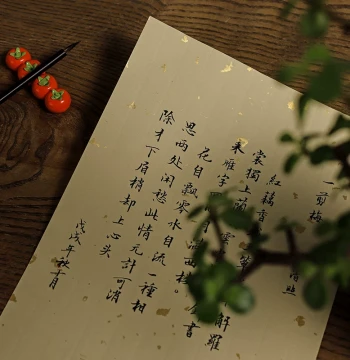 一剪梅 照
红藕香 解羅
裳獨上 雲 書
来雁字 月满西楼
花自飘零水自流一種相
思两处闲愁此情无计可消
除才下眉梢却上心头
戊戌年秋月